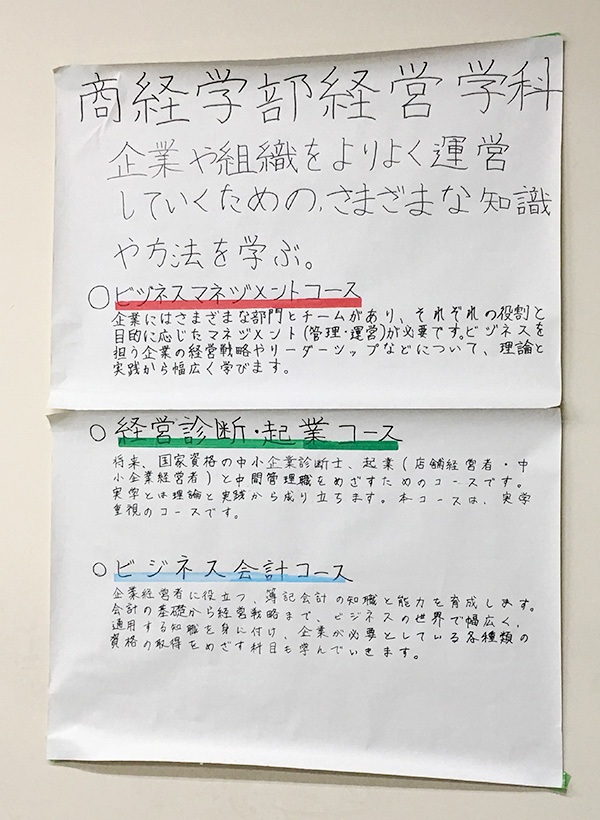 商経学部経営学科
企業や組織をよりよく運営
していくための、さまざまな知識
や方法を学ぶ。
○ビジネスマネジメントコース
企業にはさまざまな部門とチームがあり、それぞれの役割と
目的に応じたマネジメント(管理・運営)が必要です。ビジネスを
担う企業の経営戦略やリーダーシップなどについて、理論と
実践から幅広く学びます。
○経営診断・起業コース
将来、国家資格の中小企業診断士、起業(店舗経営者・中
小企業経営者)と中間管理職をめざすためのコースです。
実学とは理論と実践から成り立ちます。本コースは、実学
重視のコースです。
○ビジネス会計コース
企業経営者に役立つ、簿記会計の知識と能力を育成します。
会計の基礎から経営戦略まで、ビジネスの世界で幅広く、
適用する知識を身に付け、企業が必要としている各種類の
資格の取得をめざす科目も学んでいきます。